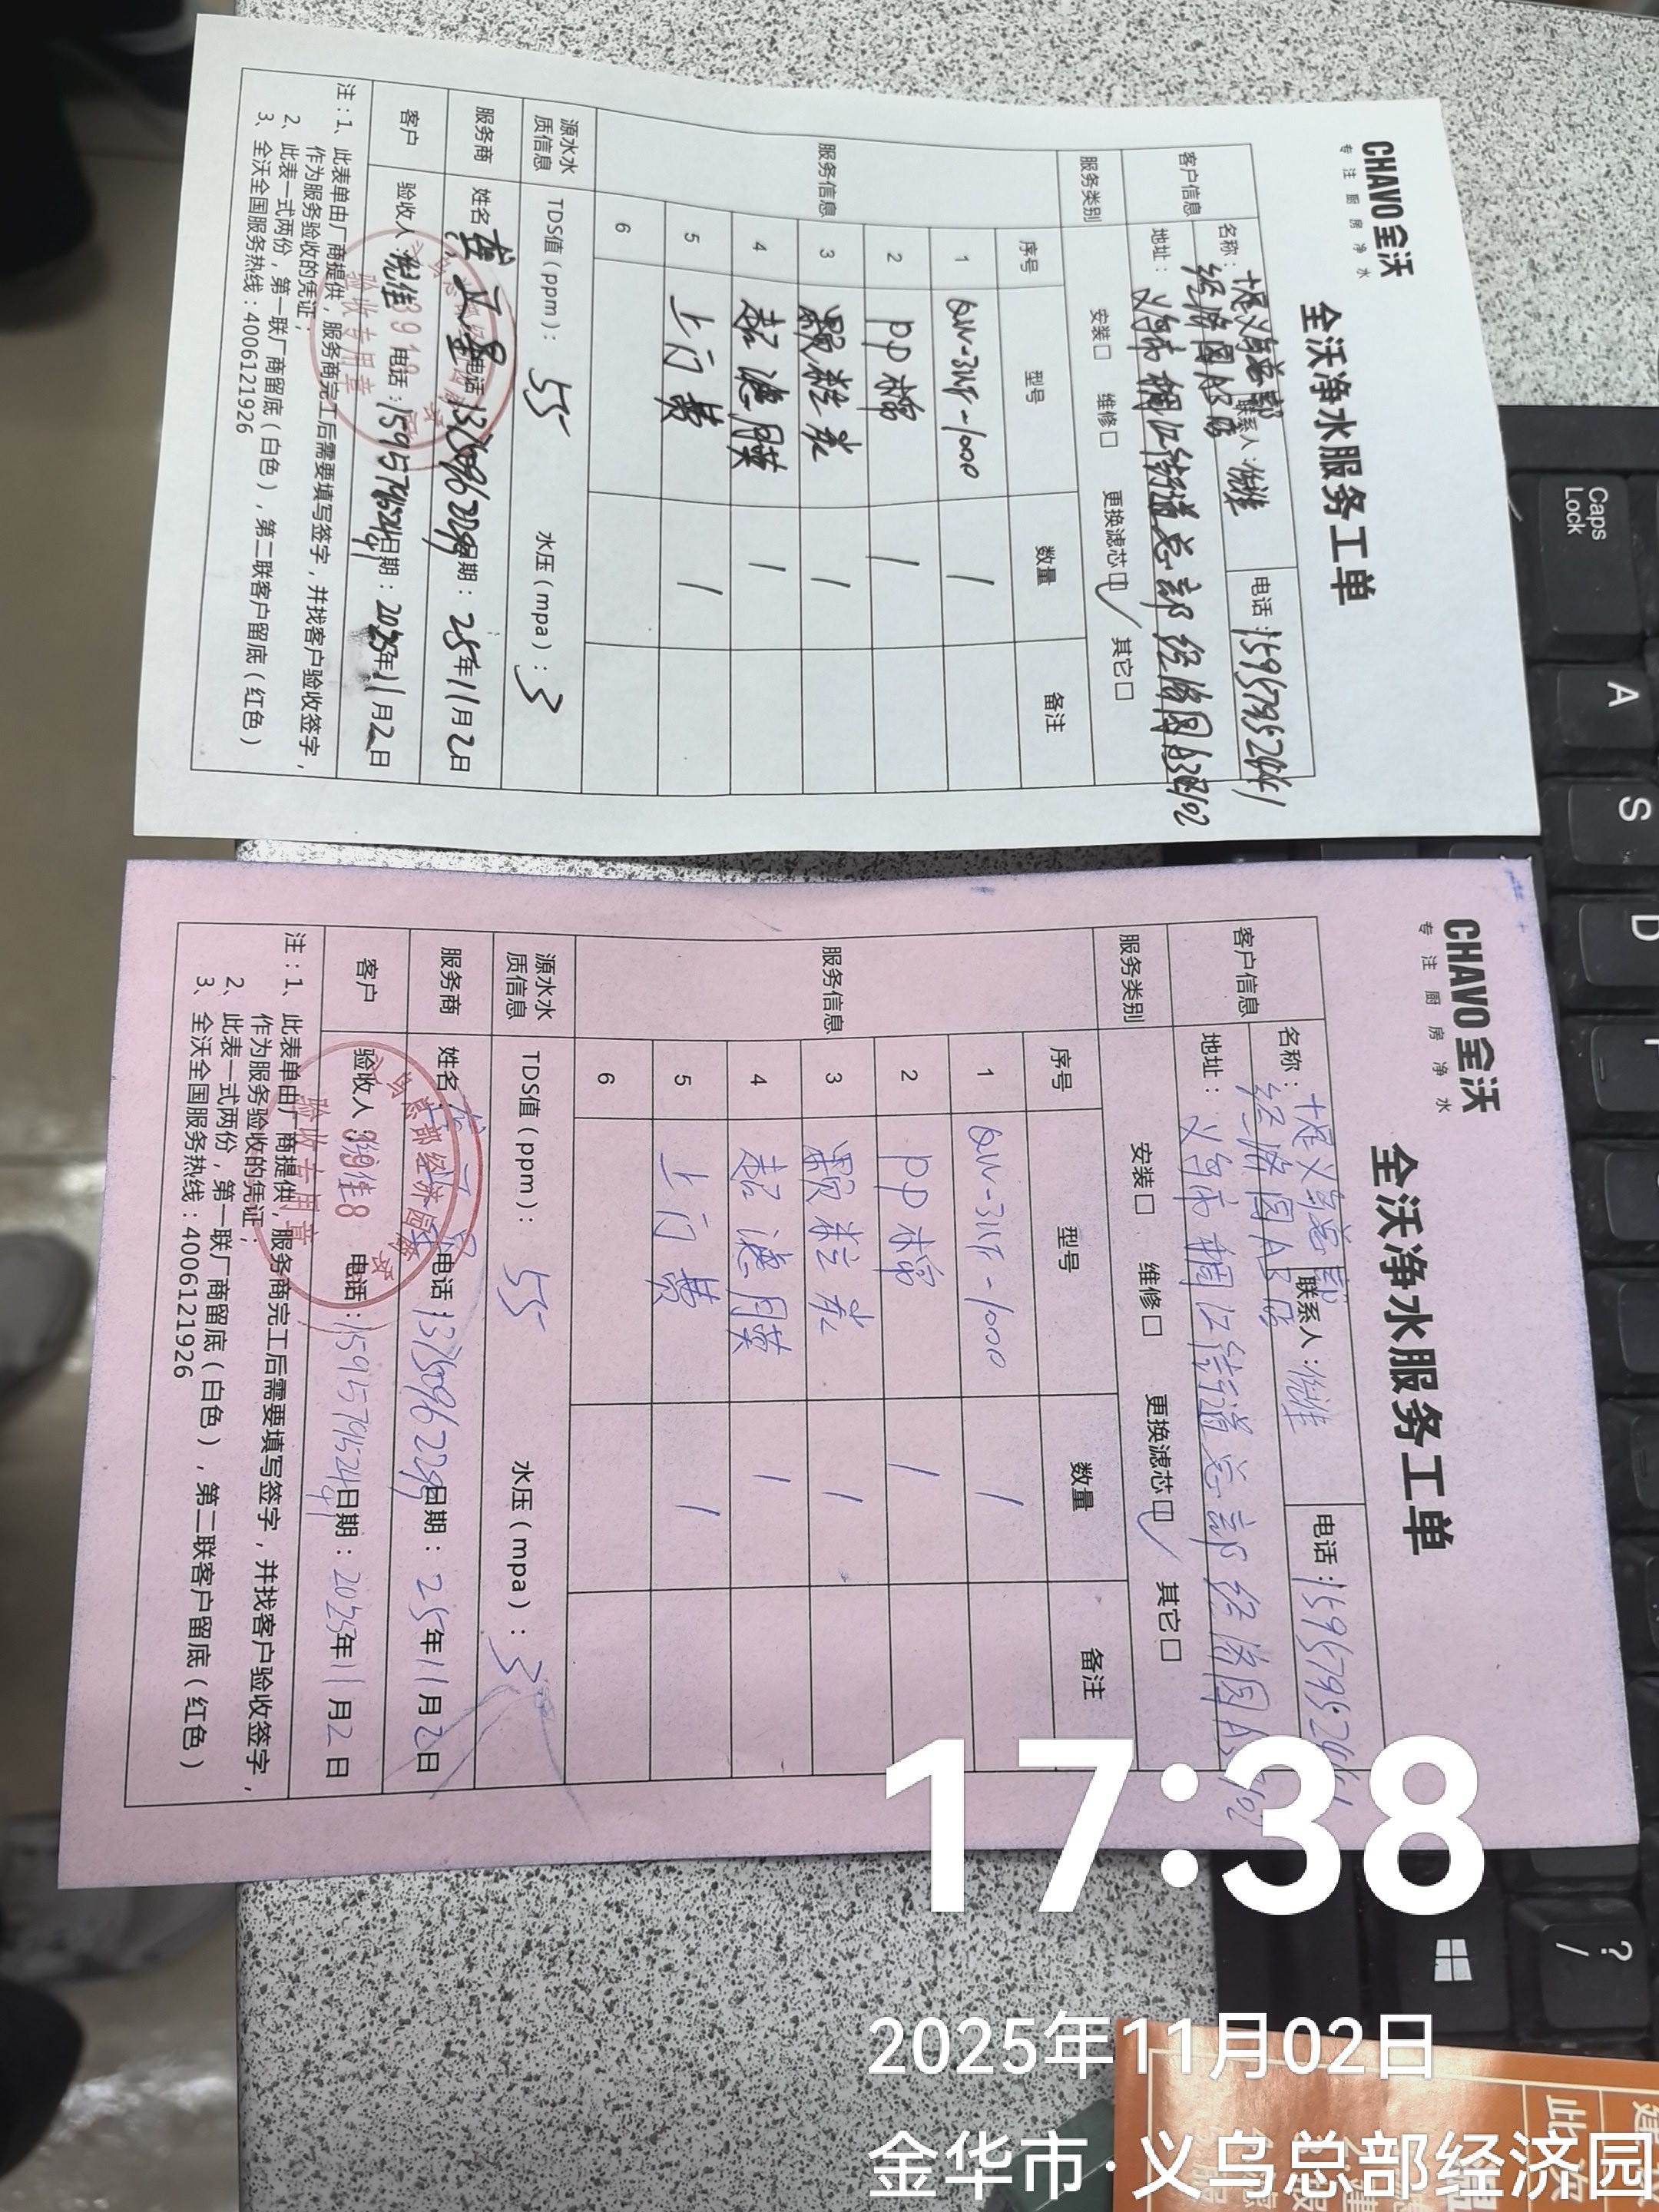 CHAVO全沃
专注厨房净水
全沃净水服务工单
客户信息
名称:
经济园A3
联系人:
电话:
地址: 义乌市稠江街道总部经济园A3
服务类别
安装□ 维修□ 更换滤芯☑ 其它□
服务信息
序号 型号 数量 备注
1 QW-3UF-1000 1
2 PP棉 1
3 颗粒炭 1
4 超滤膜 1
5 上门费 1
6
源水水质信息
TDS值(ppm): 55 水压(mpa): 3
服务商 姓名: 电话: 日期: 25年11月2日
客户 验收人: 电话: 日期: 2025年11月2日
验收专用章
注:1、此表单由厂商提供,服务商完工后需要填写签字,并找客户验收签字,
作为服务验收的凭证;
2、此表一式两份,第一联厂商留底(白色),第二联客户留底(红色)
3、全沃全国服务热线:4006121926
CHAVO全沃
专注厨房净水
全沃净水服务工单
客户信息
名称:
经济园A3
联系人:
电话:
地址: 义乌市稠江街道总部经济园
服务类别
安装□ 维修□ 更换滤芯☑ 其它□
服务信息
序号 型号 数量 备注
1 QW-3UF-1000 1
2 PP棉 1
3 颗粒炭 1
4 超滤膜 1
5 上门费 1
6
源水水质信息
TDS值(ppm): 55 水压(mpa): 3
服务商 姓名: 电话: 日期: 25年11月2日
客户 验收人: 电话: 日期: 2025年11月2日
验收专用章
注:1、此表单由厂商提供,服务商完工后需要填写签字,并找客户验收签字,
作为服务验收的凭证;
2、此表一式两份,第一联厂商留底(白色),第二联客户留底(红色)
3、全沃全国服务热线:4006121926
Caps Lock
A
S
D
?
/
17:38
2025年11月02日
金华市·义乌总部经济园